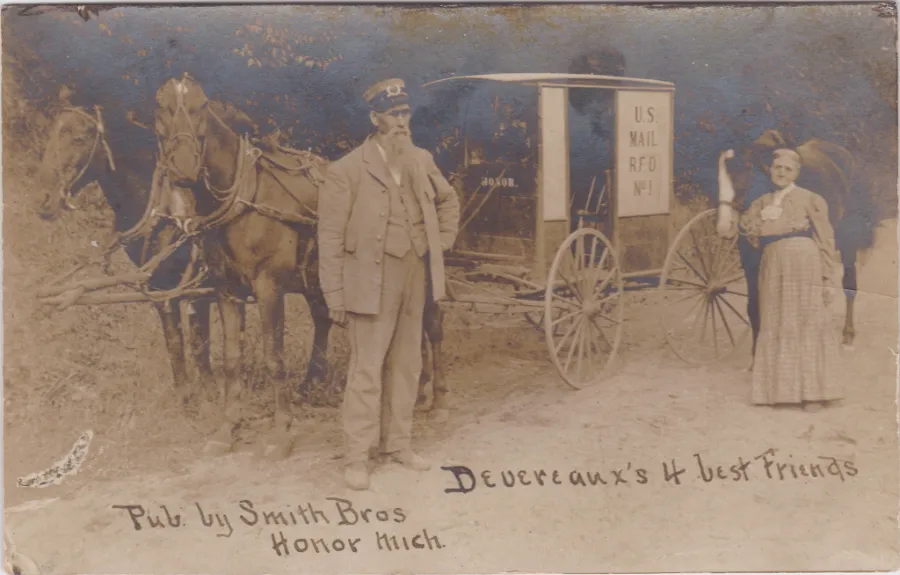 U.S.
MAIL
R.F.D.
Nº1
HONOR.
Devereaux's 4 best Friends
Pub. by Smith Bros
Honor Mich.